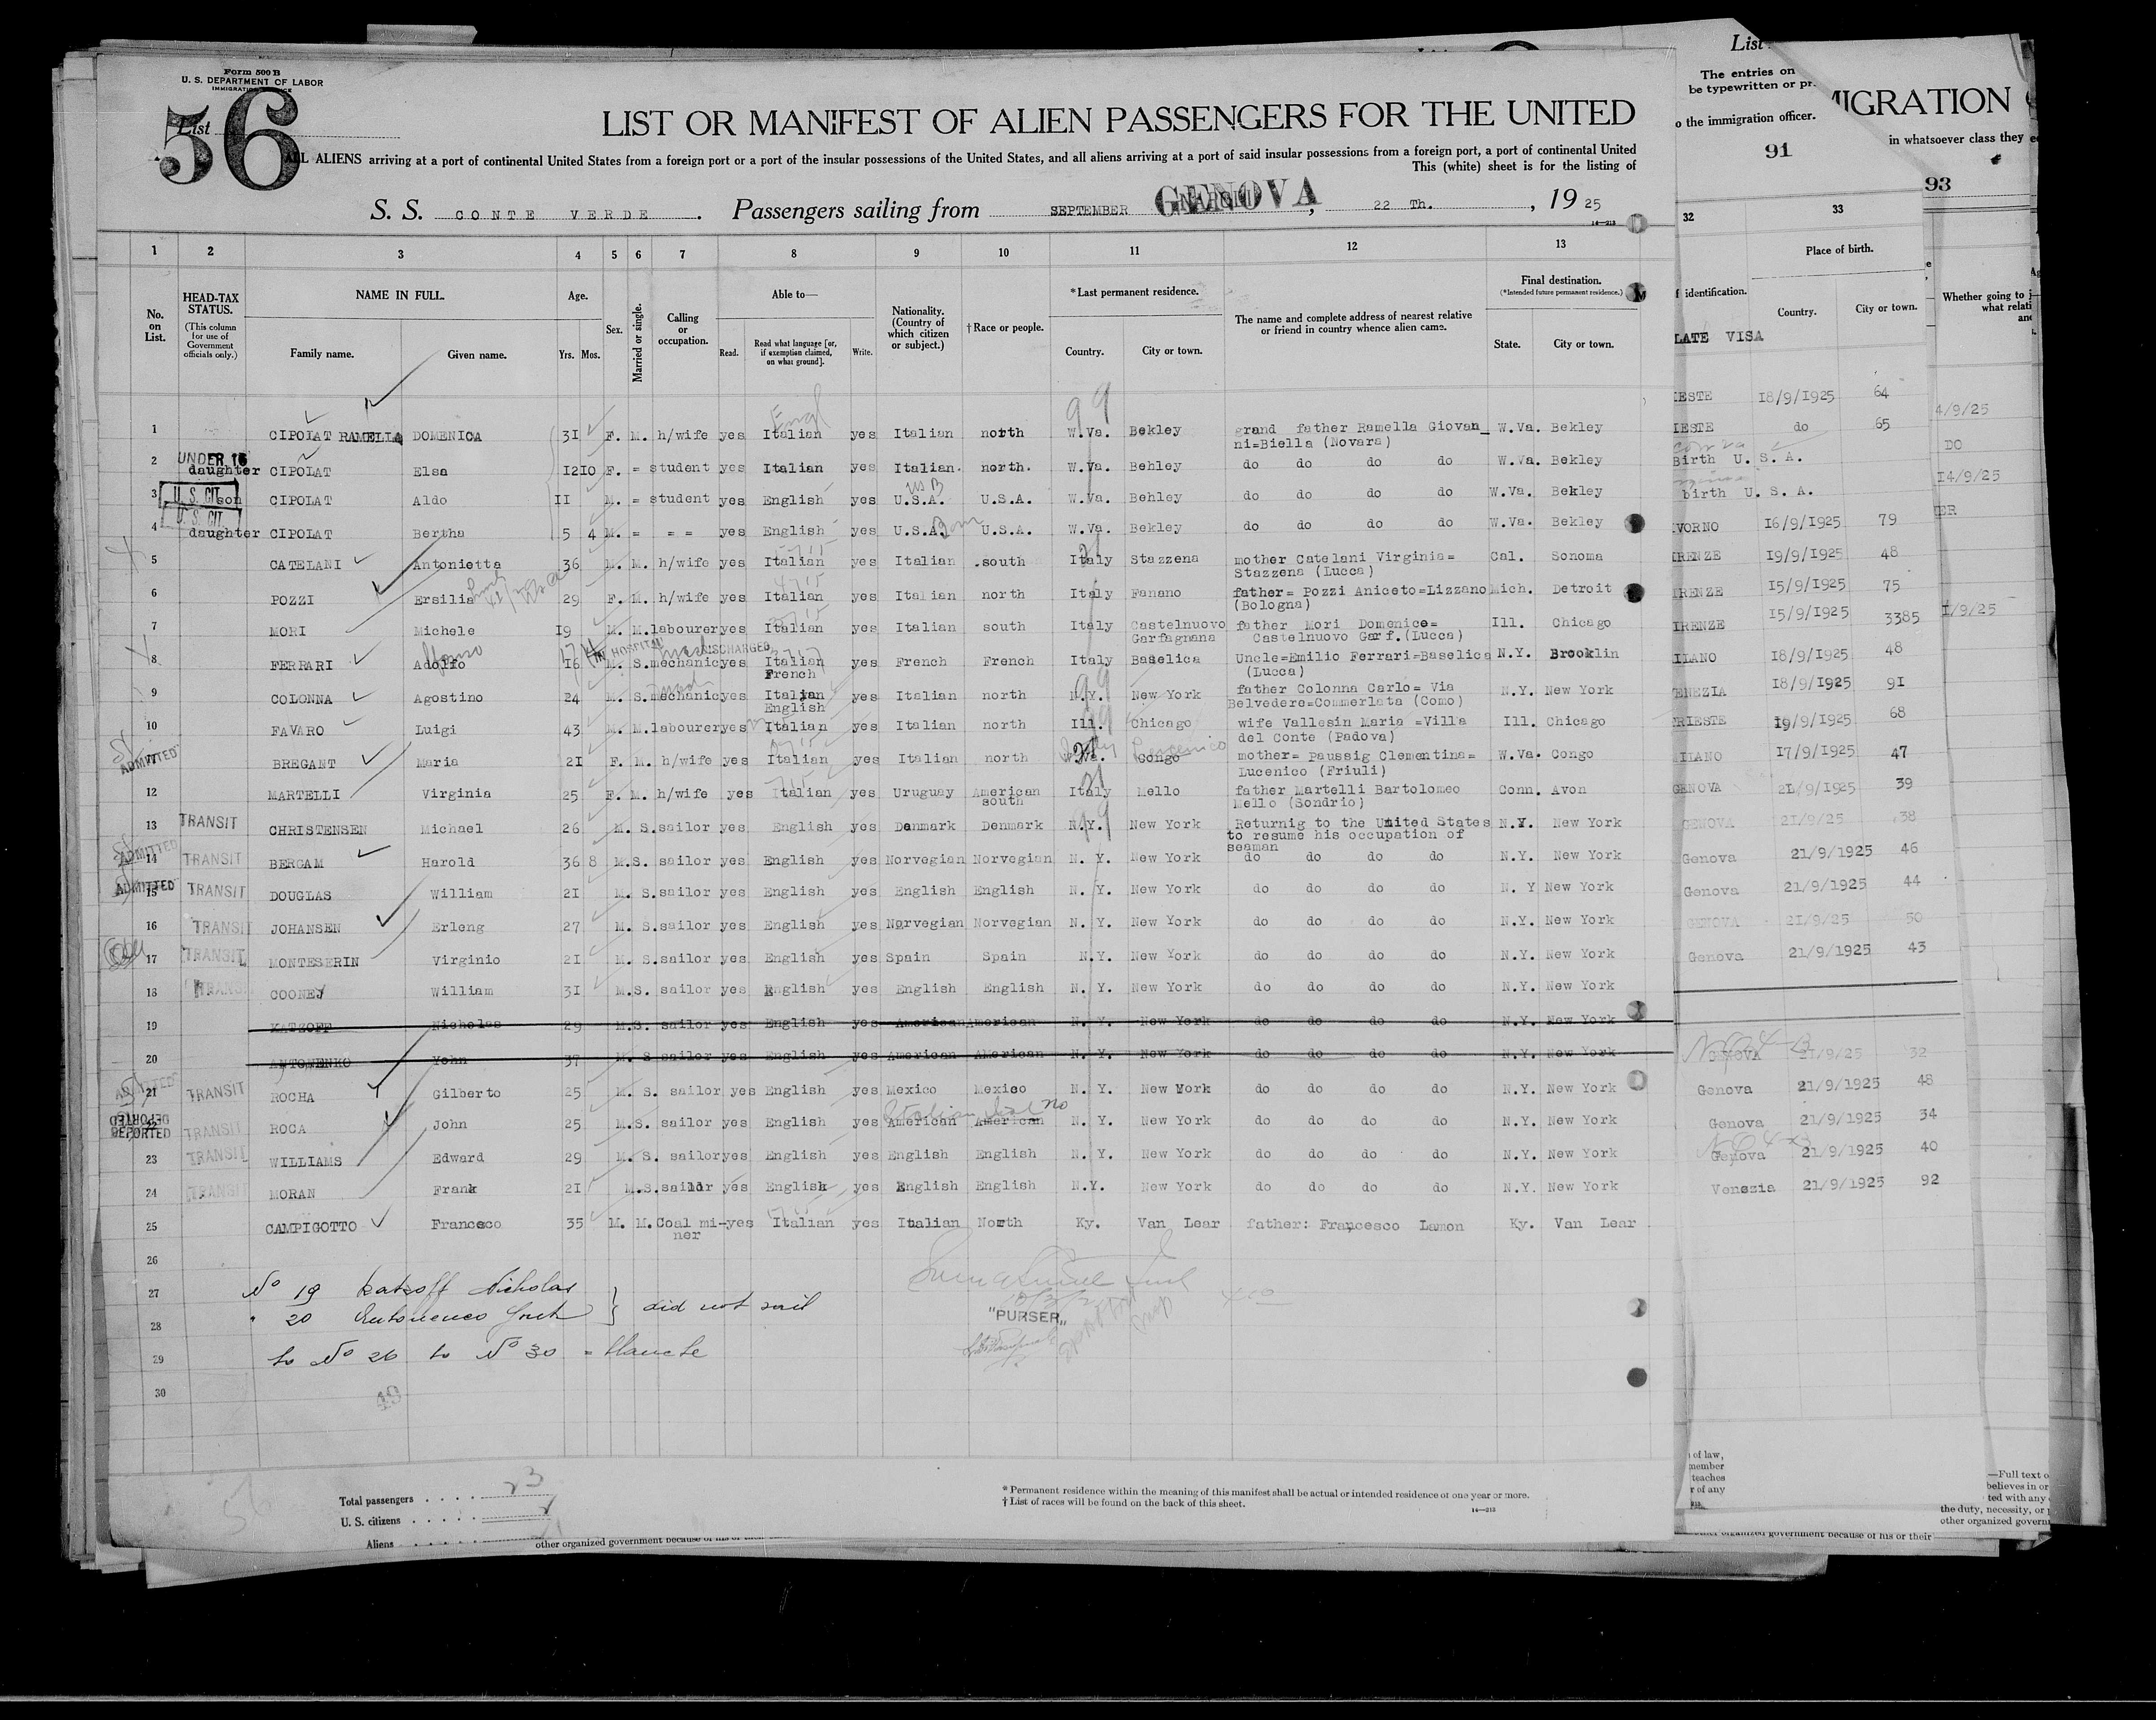 Form 500 B
U. S. DEPARTMENT OF LABOR
List
56
LIST OR MANIFEST OF ALIEN PASSENGERS FOR THE UNITED
ALL ALIENS arriving at a port of continental United States from a foreign port or a port of the insular possessions of the United States, and all aliens arriving at a port of said insular possessions from a foreign port, a port of continental United
This (white) sheet is for the listing of
S. S. CONTE VERDE. Passengers sailing from SEPTEMBER GENOVA, 22 Th., 19 25
1 2 3 4 5 6 7 8 9 10 11 12 13
No. on List. HEAD-TAX STATUS. (This column for use of Government officials only.) NAME IN FULL. Family name. Given name. Age. Yrs. Mos. Sex. Married or single. Calling or occupation. Able to— Read. Read what language [or, if exemption claimed, on what ground]. Write. Nationality. (Country of which citizen or subject.) † Race or people. *Last permanent residence. Country. City or town. The name and complete address of nearest relative or friend in country whence alien came. Final destination. (*Intended future permanent residence.) State. City or town.
Engl 99
1 CIPOLAT RAMELLA DOMENICA 31 F. M. h/wife yes Italian yes Italian north W.Va. Bekley grand father Ramella Giovan_ W.Va. Bekley
ni=Biella (Novara)
UNDER 16
2 daughter CIPOLAT Elsa 12 10 F. = student yes Italian yes Italian. north. W.Va. Behley do do do do W.Va. Bekley
U. S. CIT.
3 son CIPOLAT Aldo II M. = student yes English yes U.S.A. U.S.A. W.Va. Behley do do do do W.Va. Bekley
U. S. CIT.
4 daughter CIPOLAT Bertha 5 4 M. = = = yes English yes U.S.A. Born U.S.A. W.Va. Bekley do do do do W.Va. Bekley
5 CATELANI Antonietta 36 M. M. h/wife yes Italian yes Italian south Italy Stazzena mother Catelani Virginia= Cal. Sonoma
Stazzena (Lucca)
6 POZZI Ersilia 29 F. M. h/wife yes Italian yes Italian north Italy Fanano father= Pozzi Aniceto=Lizzano Mich. Detroit
(Bologna)
7 MORI Michele I9 M. M. labourer yes Italian yes Italian south Italy Castelnuovo father Mori Domenico= Ill. Chicago
Garfagnana Castelnuovo Garf.(Lucca)
IN HOSPITAL DISCHARGED
8 FERRARI Adolfo 16 M. S. mechanic yes Italian yes French French Italy Baselica Uncle=Emilio Ferrari=Baselica N.Y. Brooklin
French (Lucca)
9 COLONNA Agostino 24 M. S. mechanic yes Italian yes Italian north N.Y. New York father Colonna Carlo= Via N.Y. New York
English Belvedere=Commerlata (Como)
10 FAVARO Luigi 43 M. M. labourer yes Italian yes Italian north Ill. Chicago wife Vallesin Maria =Villa Ill. Chicago
del Conte (Padova)
ADMITTED Italy Lucenico
BREGANT Maria 21 F. M. h/wife yes Italian yes Italian north W.Va. Congo mother= Paussig Clementina= W.Va. Congo
Lucenico (Friuli)
12 MARTELLI Virginia 25 F. M. h/wife yes Italian yes Uruguay American south Italy Mello father Martelli Bartolomeo Conn. Avon
Mello (Sondrio)
13 TRANSIT CHRISTENSEN Michael 26 M. S. sailor yes English yes Denmark Denmark N.Y. New York Returnig to the United States N.Y. New York
to resume his occupation of
seaman
ADMITTED
14 TRANSIT BERGAM Harold 36 8 M.S. sailor yes English yes Norwegian Norwegian N. Y. New York do do do do N.Y. New York
ADMITTED 15 TRANSIT DOUGLAS William 21 M. S. sailor yes English yes English English N. Y. New York do do do do N. Y New York
16 TRANSIT JOHANSEN Erleng 27 M. S. sailor yes English yes Norwegian Norwegian N. Y. New York do do do do N.Y. New York
17 TRANSIT MONTESERIN Virginio 21 M. S. sailor yes English yes Spain Spain N.Y. New York do do do do N.Y. New York
18 TRANS COONEY William 31 M.S. sailor yes English yes English English N. Y. New York do do do do N.Y. New York
19 KATZOFF Nicholas 29 M.S. sailor yes English yes American American N. Y. New York do do do do N.Y. New York
20 ANTONENKO Yohn 37 M. S sailor yes English yes American American N. Y. New York do do do do N.Y. New York
ADMITTED
21 TRANSIT ROCHA Gilberto 25 M. S. sailor yes English yes Mexico Mexico N. Y. New York do do do do N.Y. New York
DEPORTED Italian no
DEPORTED TRANSIT ROCA John 25 M.S. sailor yes English yes American American N. Y. New York do do do do N.Y. New York
23 TRANSIT WILLIAMS Edward 29 M. S. sailor yes English yes English English N. Y. New York do do do do N.Y. New York
24 TRANSIT MORAN Frank 21 M.S. sailor yes English yes English English N.Y. New York do do do do N.Y. New York
25 CAMPIGOTTO Francesco 35 M. M. Coal mi- yes Italian yes Italian North Ky. Van Lear father: Francesco Lamon Ky. Van Lear
ner
26
27 No 19 Katzoff Nicholas
28 " 20 } did not sail
"PURSER"
29 to No 26 to No 30 = blanche
30
49
Total passengers 23
U. S. citizens 2
Aliens
* Permanent residence within the meaning of this manifest shall be actual or intended residence of one year or more.
† List of races will be found on the back of this sheet.
14—213
other organized government because of his or their
List
The entries on
be typewritten or pr
o the immigration officer.
MIGRATION
in whatsoever class they
91
93
32 33
Place of birth.
f identification. Country. City or town.
Whether going to j
what relati
an
LATE VISA
IESTE 18/9/1925 64
4/9/25
IESTE do 65
DO
Birth U. S. A.
14/9/25
birth U. S. A.
ER
VORNO 16/9/1925 79
IRENZE 19/9/1925 48
IRENZE 15/9/1925 75
IRENZE 15/9/1925 3385
1/9/25
ILANO 18/9/1925 48
ENEZIA 18/9/1925 91
RIESTE 19/9/1925 68
ILANO 17/9/1925 47
GENOVA 21/9/1925 39
GENOVA 21/9/25 38
Genova 21/9/1925 46
Genova 21/9/1925 44
GENOVA 21/9/25 50
Genova 21/9/1925 43
GENOVA 21/9/25 32
Genova 21/9/1925 48
Genova 21/9/1925 34
Genova 21/9/1925 40
Venezia 21/9/1925 92
of law,
member
teaches
r of any
—Full text o
believes in or
ted with any
the duty, necessity, or
other organized govern
other organized government because of his or their